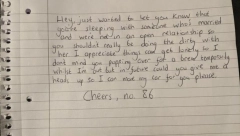 Hey, just wanted to let you know that
you're sleeping with someone who's married
and were not in an open relationship so
you shouldn't really be doing the dirty with
her. I appreciate things can get lonely so I
dont mind you popping over for a brew temporarily
whilst I'm but in future could you give me a
heads up so I can move my car for you please.
Cheers, no. 86